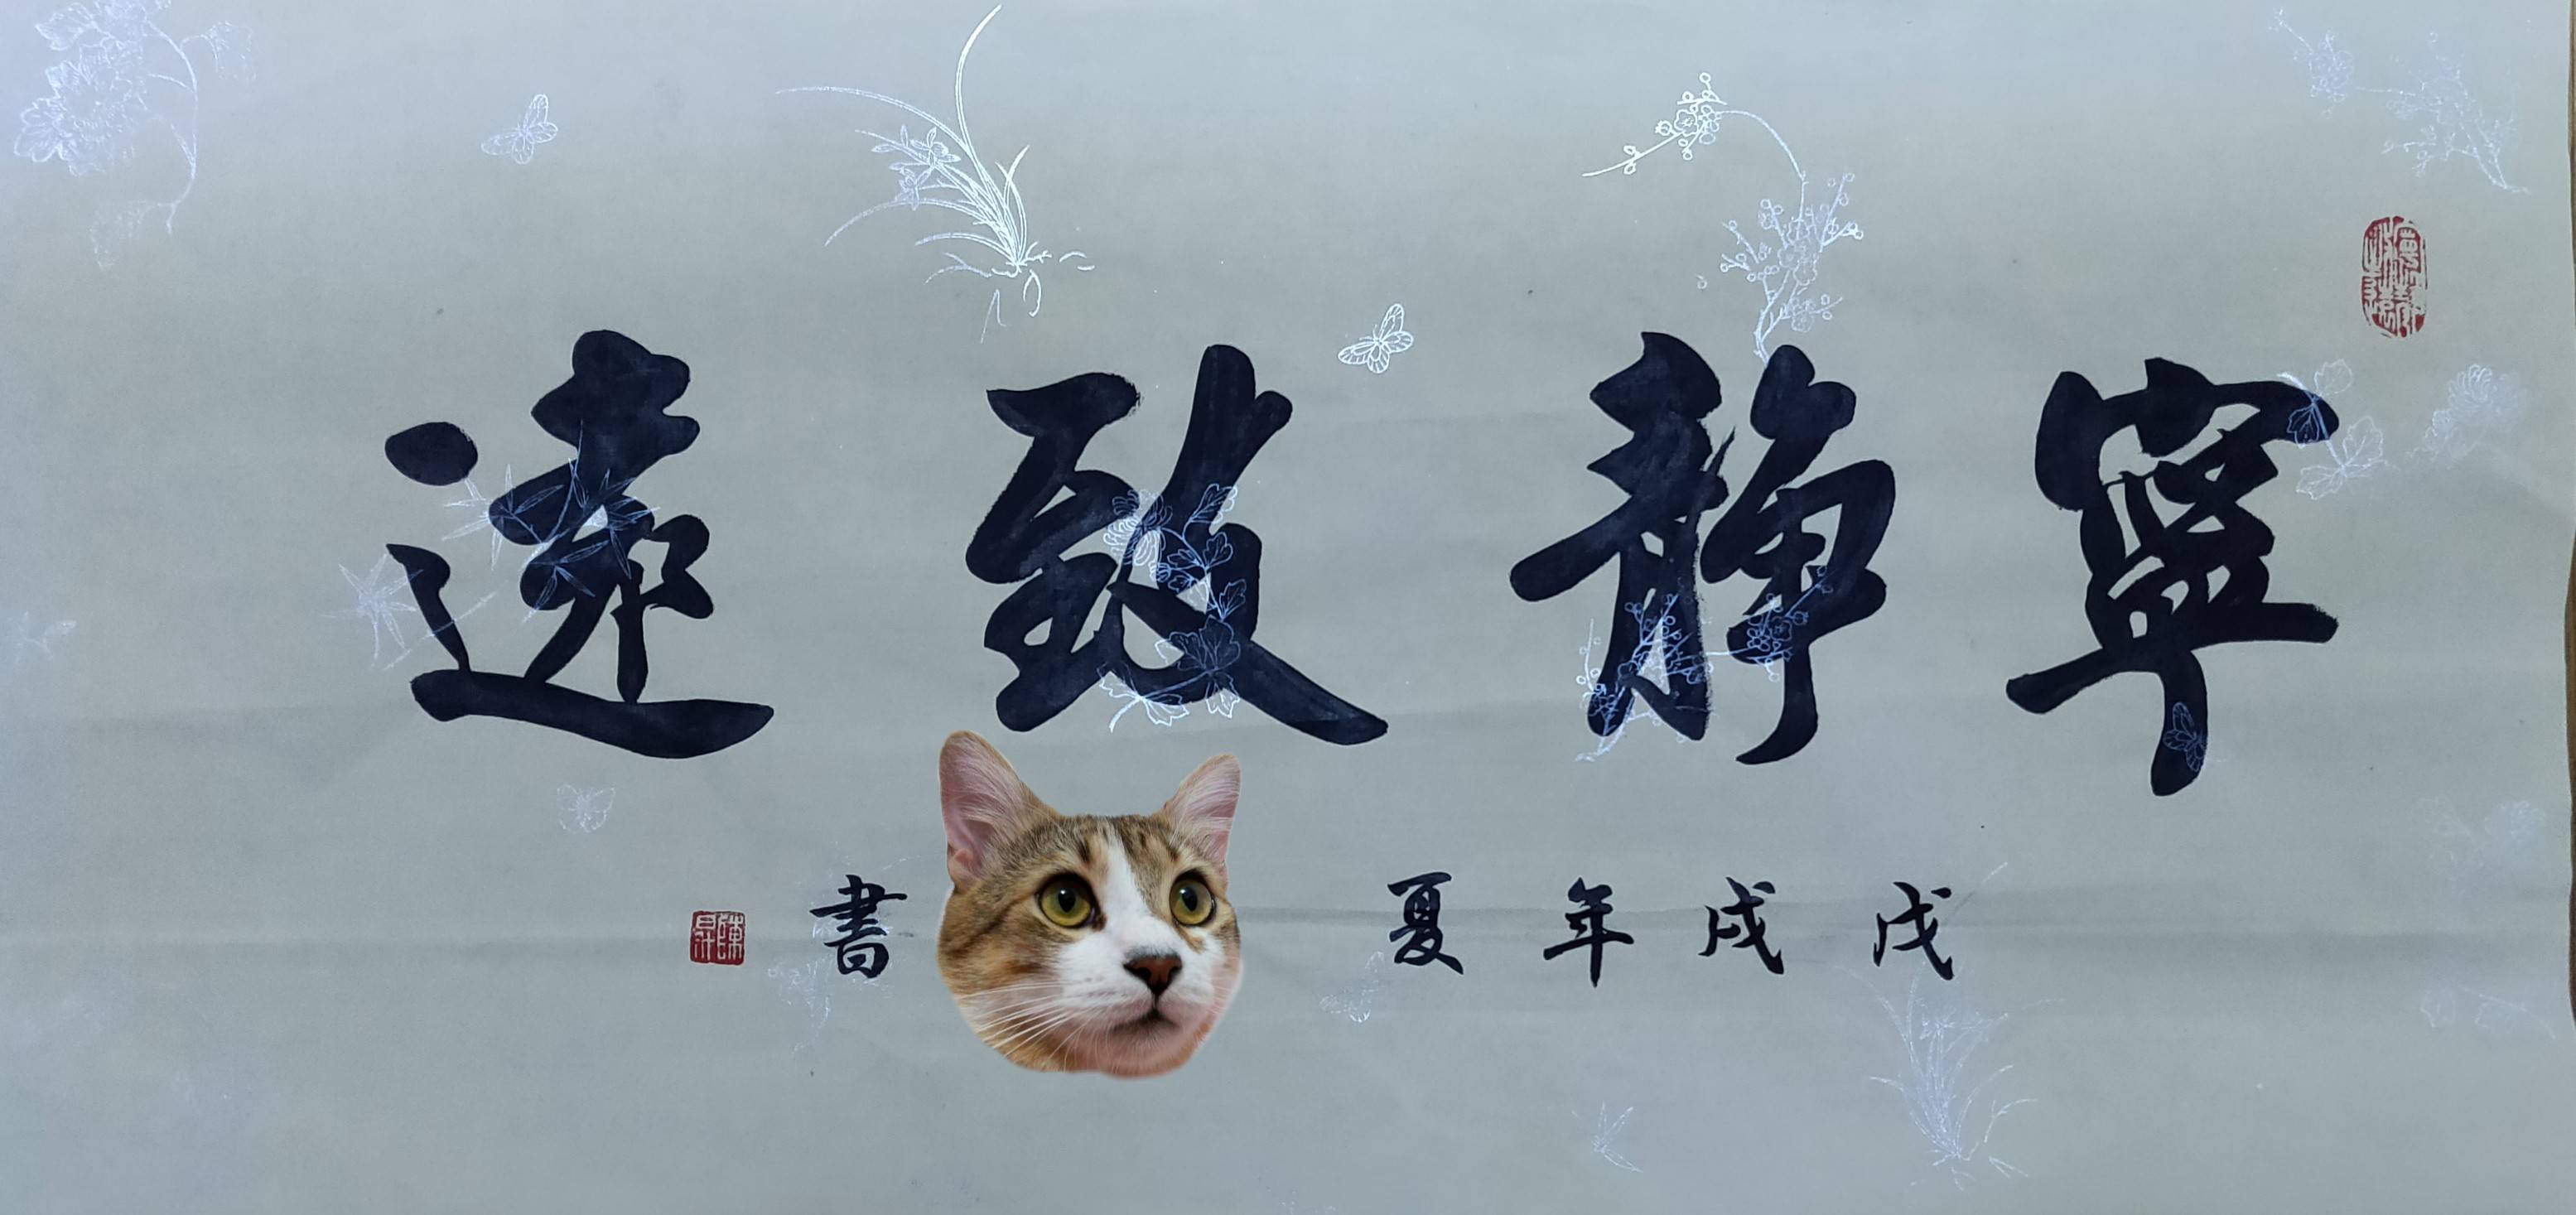 寧靜致遠
戊戌年夏
書
陳昇